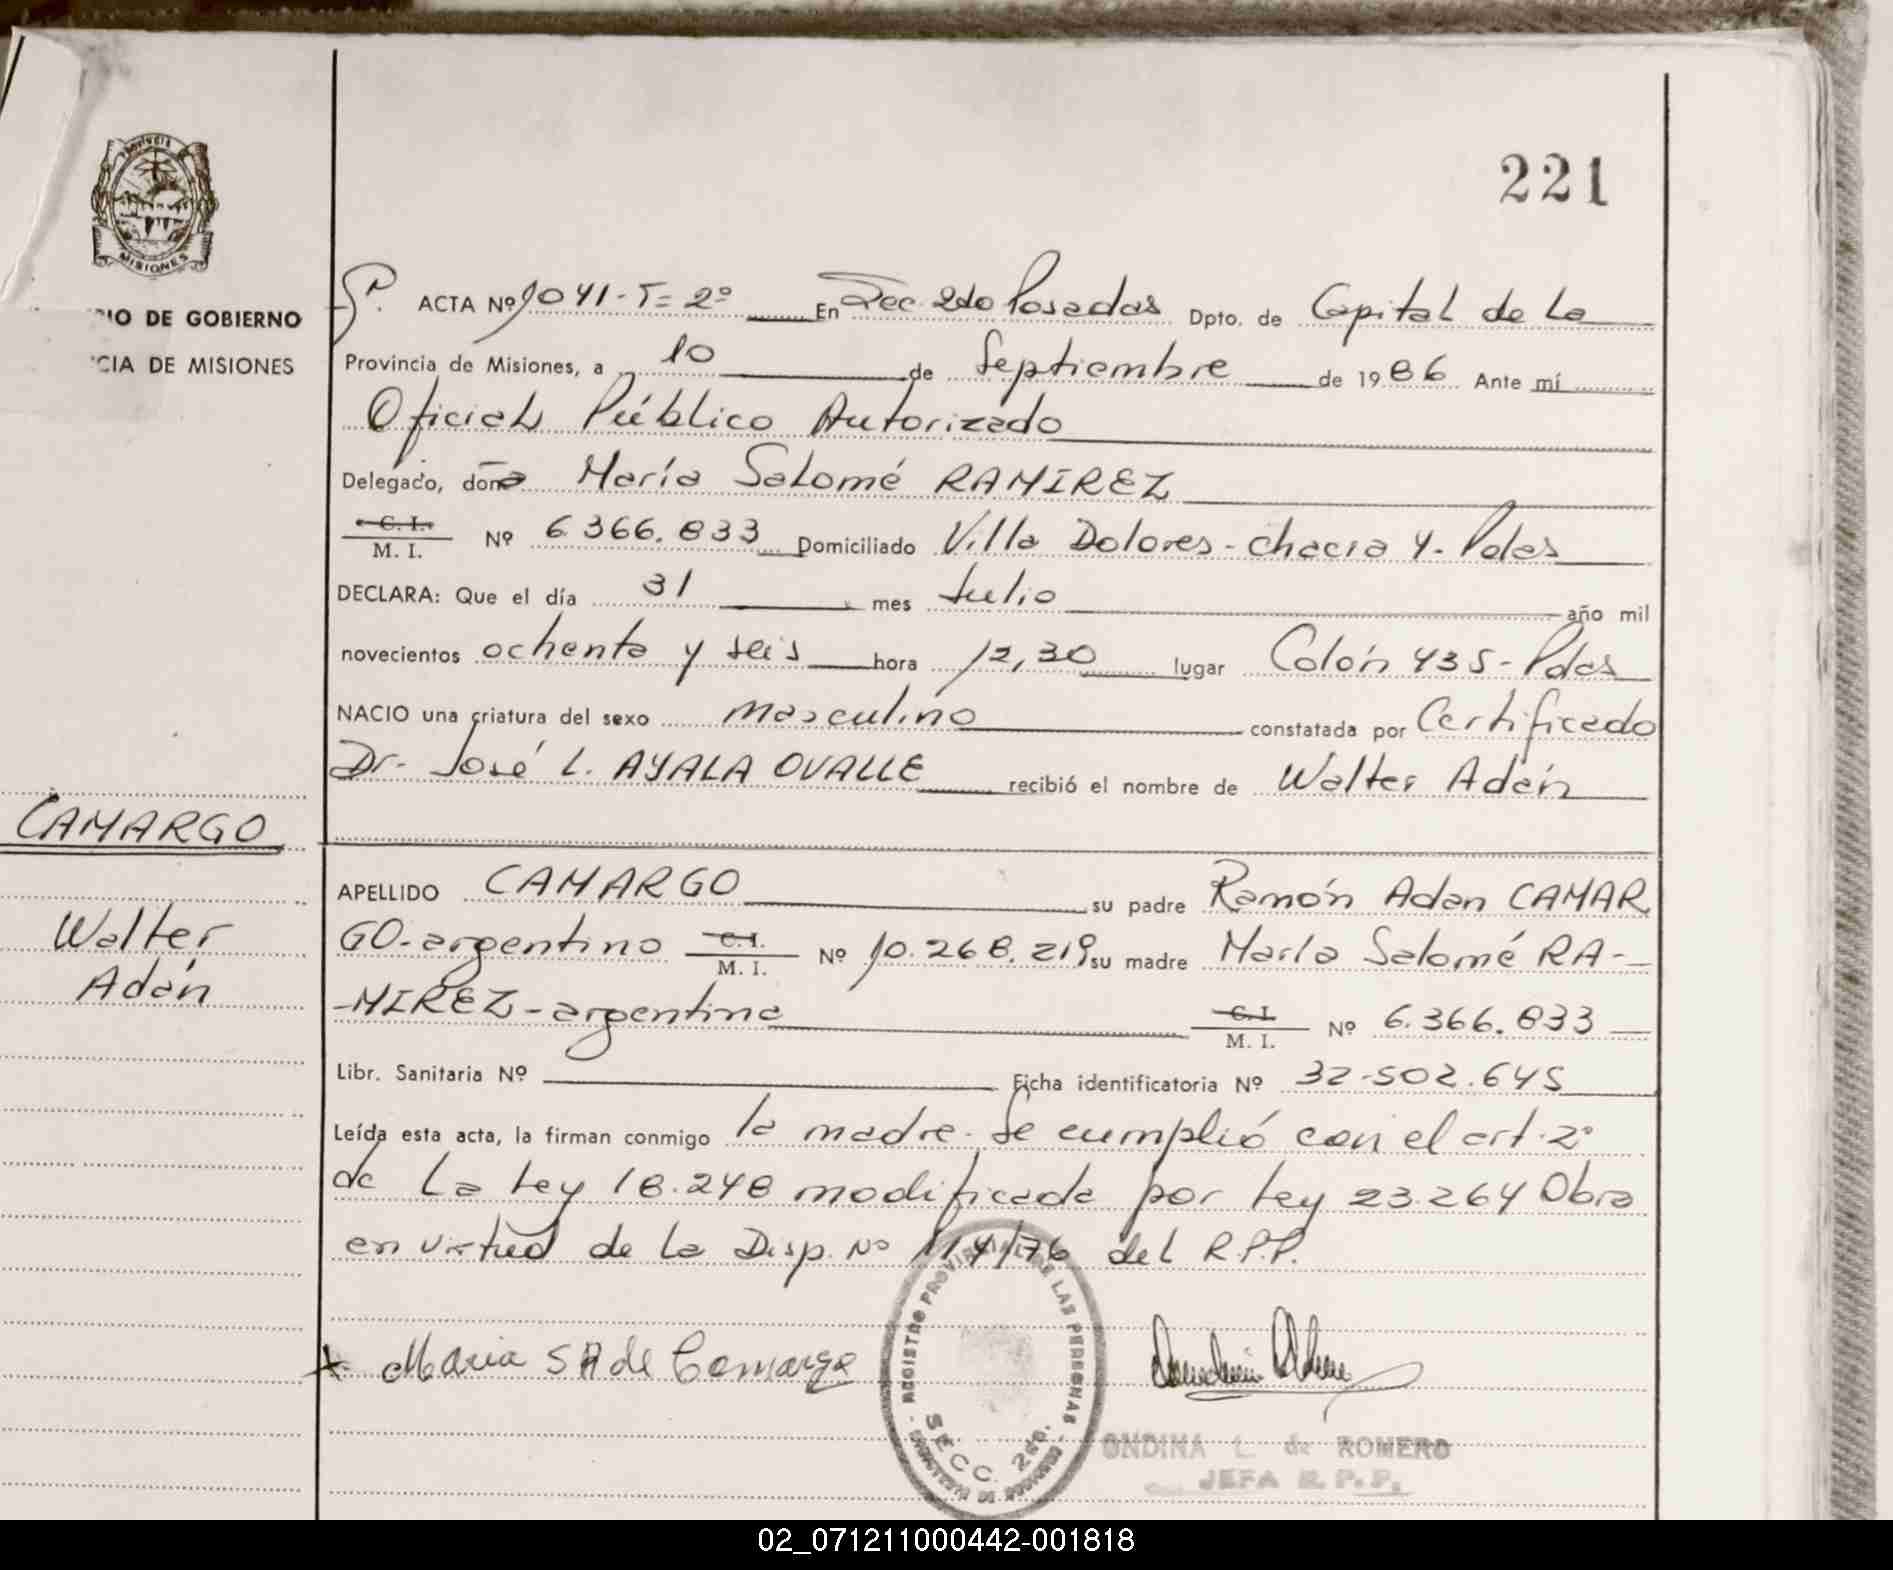 221
PROVINCIA
MISIONES
IO DE GOBIERNO
CIA DE MISIONES
ACTA Nº 1041-T=2º En Secc. 2do Posadas Dpto. de Capital de La
Provincia de Misiones, a 10 de Septiembre de 1986 Ante mí
Oficial Público Autorizado
Delegado, doña María Salomé RAMIREZ
C. I. M. I. Nº 6.366.833 Domiciliado Villa Dolores - chacra 4 - Pdas
DECLARA: Que el día 31 mes Julio año mil
novecientos ochenta y seis hora 12,30 lugar Colón 435 - Pdas
NACIO una criatura del sexo masculino constatada por Certificado
Dr. José L. AYALA OVALLE recibió el nombre de Walter Adán
CAMARGO
Walter
Adán
APELLIDO CAMARGO su padre Ramón Adan CAMAR
GO - argentino C. I. M. I. Nº 10.268.219 su madre María Salomé RA-
-MIREZ - argentina C. I. M. I. Nº 6.366.833
Libr. Sanitaria Nº Ficha identificatoria Nº 32.502.645
Leída esta acta, la firman conmigo la madre. Se cumplió con el art. 2º
de La Ley 18.248 modificada por Ley 23.264 Obra
en virtud de la Disp. Nº 114/76 del R.P.P.
Maria S R de Camargo
REGISTRO PROVINCIAL DE LAS PERSONAS
SECC. 2da.
MINISTERIO DE GOBIERNO
ONDINA L. de ROMERO
JEFA R. P. P.
02_071211000442-001818